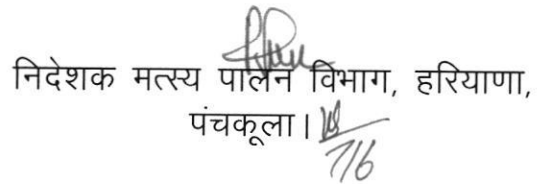 निदेशक मत्स्य पालन विभाग, हरियाणा,
पंचकूला।
7/6